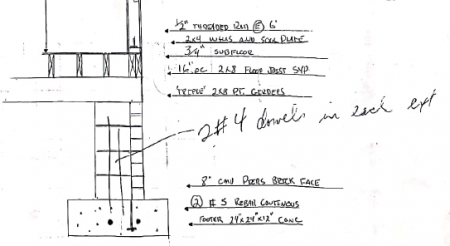 1/2" THREADED ROD @ 6'
2x4 WALLS AND SOLE PLATE
3/4" SUBFLOOR
16" OC 2x8 FLOOR JOIST SYP
TRIPLE 2x8 PT. GIRDERS
2 #4 dowels in each ext
8" CMU PIERS BRICK FACE
(2) #5 REBAR CONTINOUS
FOOTER 24"x24"x12" CONC